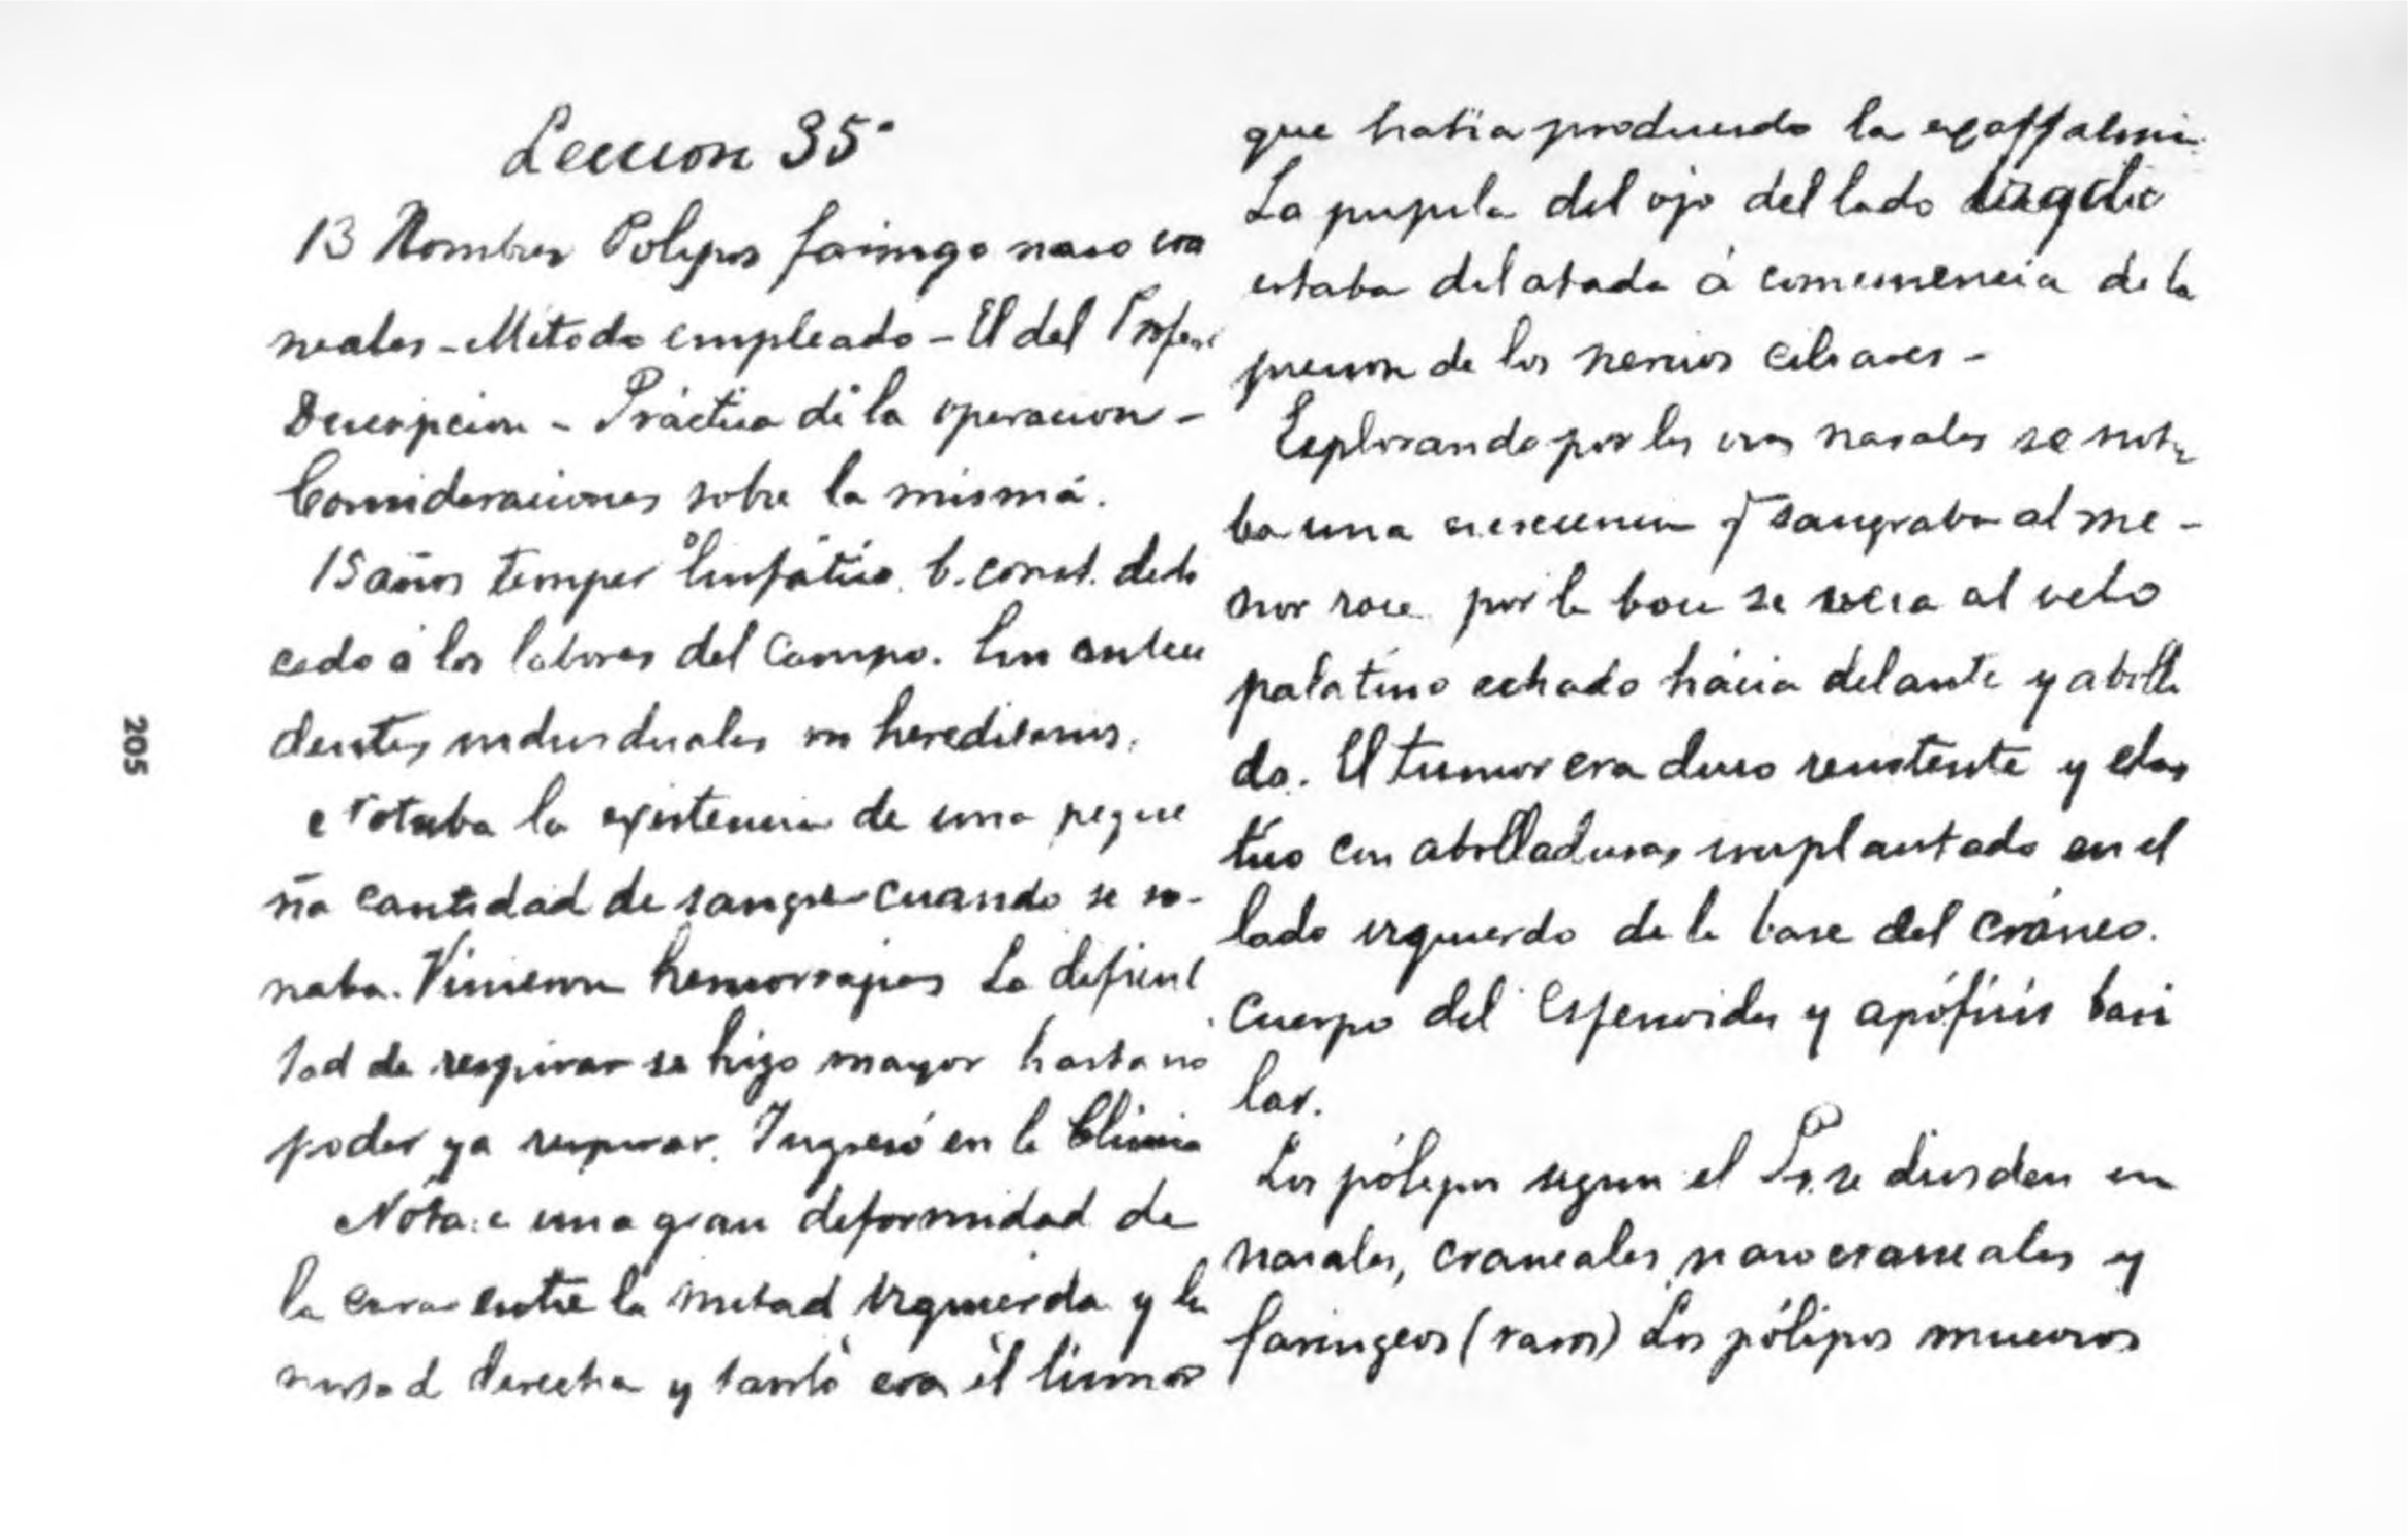 Leccion 35ª
13 Hombres Polipos faringo naso cra
neales - Método empleado - El del Profesor
Descripcion - Práctica de la operacion -
Consideraciones sobre la misma.
15 años temperº linfático. b. const. dedi
cado á las labores del Campo. Sin antece
dentes individuales ni hereditarios.
Notaba la existencia de una peque
ña cantidad de sangre cuando se so-
naba. Vinieron hemorragias La dificul
tad de respirar se hizo mayor hasta no
poder ya respirar. Ingresó en la Clinica
Nótase una gran deformidad de
la cara entre la mitad izquierda y la
mitad derecha y tanto era el tumor
que habia producido la exoftalmia
La pupila del ojo del lado
estaba dilatada á consecuencia de la
presion de los nervios ciliares -
Esplorando por las vias nasales se nota
ba una escrecencia q sangraba al me-
nor roce por la boca se veia al velo
palatino echado hácia delante y abolla
do. El tumor era duro resistente y elas
tico con abolladuras implantado en el
lado izquierdo de la base del cráneo.
Cuerpo del Esfenoides y apófisis basi
lar.
Los pólipos segun el Pr. se dividen en
nasales, craneales, naso craneales y
faringeos (raros) Los pólipos mucosos
205